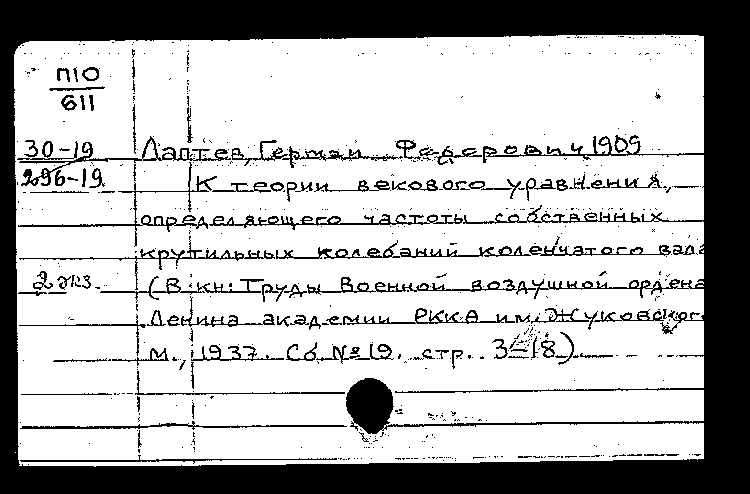 П10
611
30-19
296-19
Лаптев, Герман Федорович, 1909
К теории векового уравнения,
определяющего частоты собственных
крутильных колебаний коленчатого вала
2 экз.
(В кн: Труды Военной воздушной ордена
Ленина академии РККА им. Жуковског
М., 1937. Сб. №19. стр. 3-18)